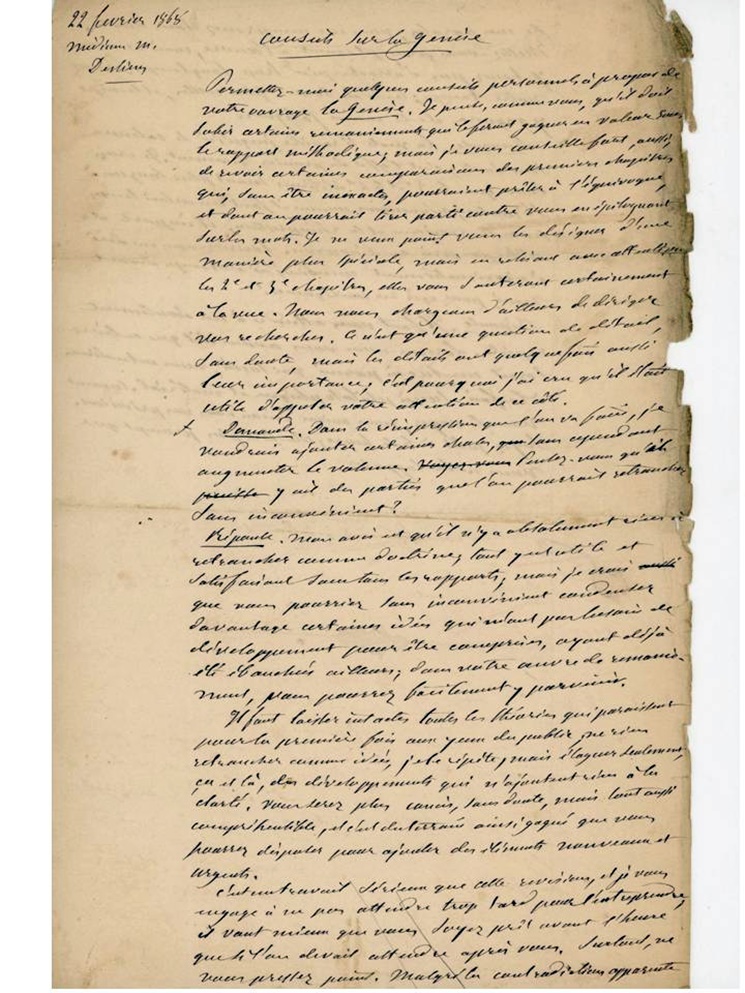 22 fevrier 1868
médium M.
Desliens
Conseils sur la genèse
Permettez-moi quelques conseils personnels à propos de
votre ouvrage la Genèse. Je pense, comme vous, qu'il doit
subir certains remaniements qui le feront gagner en valeur sous
le rapport méthodique; mais je vous conseille fort, aussi,
de revoir certaines comparaisons des premiers chapitres
qui, sans être inexactes, pourraient prêter à l'équivoque,
et dont on pourrait tirer parti contre vous en épiloguant
sur les mots. Je ne veux point vous les désigner d'une
manière plus spéciale, mais en relisant avec attention
les 2e et 3e chapitres, elles vous sauteront certainement
à la vue. Nous nous chargeons d'ailleurs de diriger
vos recherches. Ce n'est qu'une question de détail,
sans doute, mais les détails ont quelquefois aussi
leur importance; c'est pourquoi j'ai cru qu'il était
utile d'appeler votre attention de ce côté.
Demande. Dans la réimpression que l'on va faire, je
voudrais ajouter certaines choses, sans cependant
augmenter le volume. Pensez-vous qu'il
y ait des parties que l'on pourrait retrancher
sans inconvénient?
Réponse. Mon avis est qu'il n'y a absolument rien à
retrancher comme doctrine; tout y est utile et
satisfaisant sous tous les rapports, mais je crois aussi
que vous pourriez sans inconvénient condenser
davantage certaines idées qui n'ont pas besoin de
développement pour être comprises, ayant déjà
été ébauchées ailleurs; dans votre œuvre de remanie-
ment, vous pourrez facilement y parvenir.
Il faut laisser intactes toutes les théories qui paraissent
pour la première fois aux yeux du public, ne rien
retrancher comme idées, je le répète, mais élaguer seulement,
ça et là, des développements qui n'ajoutent rien à la
clarté. Vous serez plus concis, sans doute, mais tout aussi
compréhensible, et c'est du terrain ainsi gagné que vous
pourrez disposer pour ajouter des éléments nouveaux et
urgents.
C'est un travail sérieux que cette revision, et je vous
engage à ne pas attendre trop tard pour l'entreprendre,
il vaut mieux que vous soyez prêt avant l'heure
que si l'on devait attendre après vous. Surtout, ne
vous pressez point. Malgré la contradiction apparente